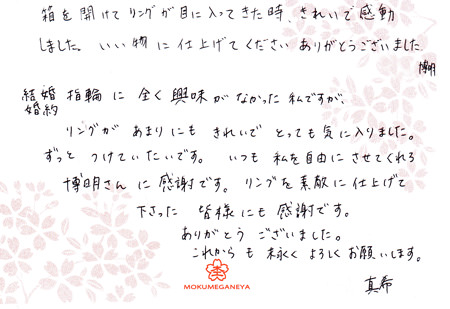 箱を開けてリングが目に入ってきた時、きれいで感動
しました。いい物に仕上げてくださいありがとうございました
博明
結婚
婚約 指輪に全く興味がなかった私ですが、
リングがあまりにもきれいでとっても気に入りました。
ずっとつけていたいです。いつも私を自由にさせてくれる
博明さんに感謝です。リングを素敵に仕上げて
下さった皆様にも感謝です。
ありがとうございました。
これからも永くよろしくお願いします。
真希
MOKUMEGANEYA